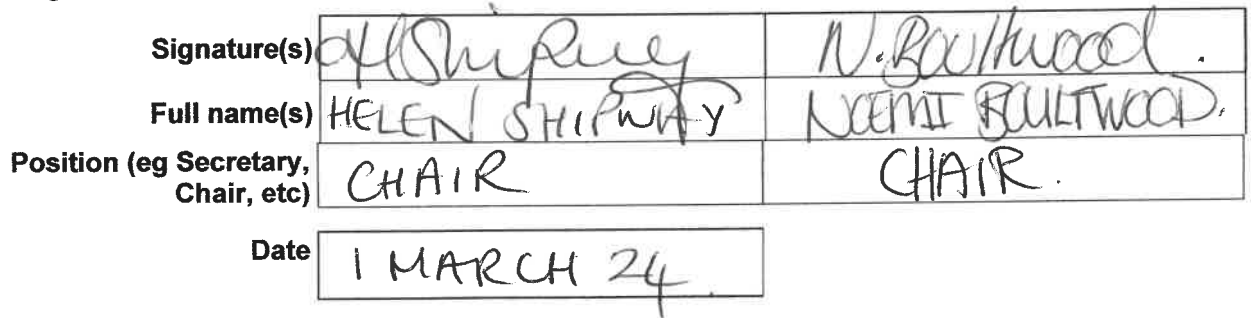 Signature(s) HShipway N. Boultwood.
Full name(s) HELEN SHIPWAY NOEMI BOULTWOOD.
Position (eg Secretary, CHAIR CHAIR.
Chair, etc)
Date 1 MARCH 24.